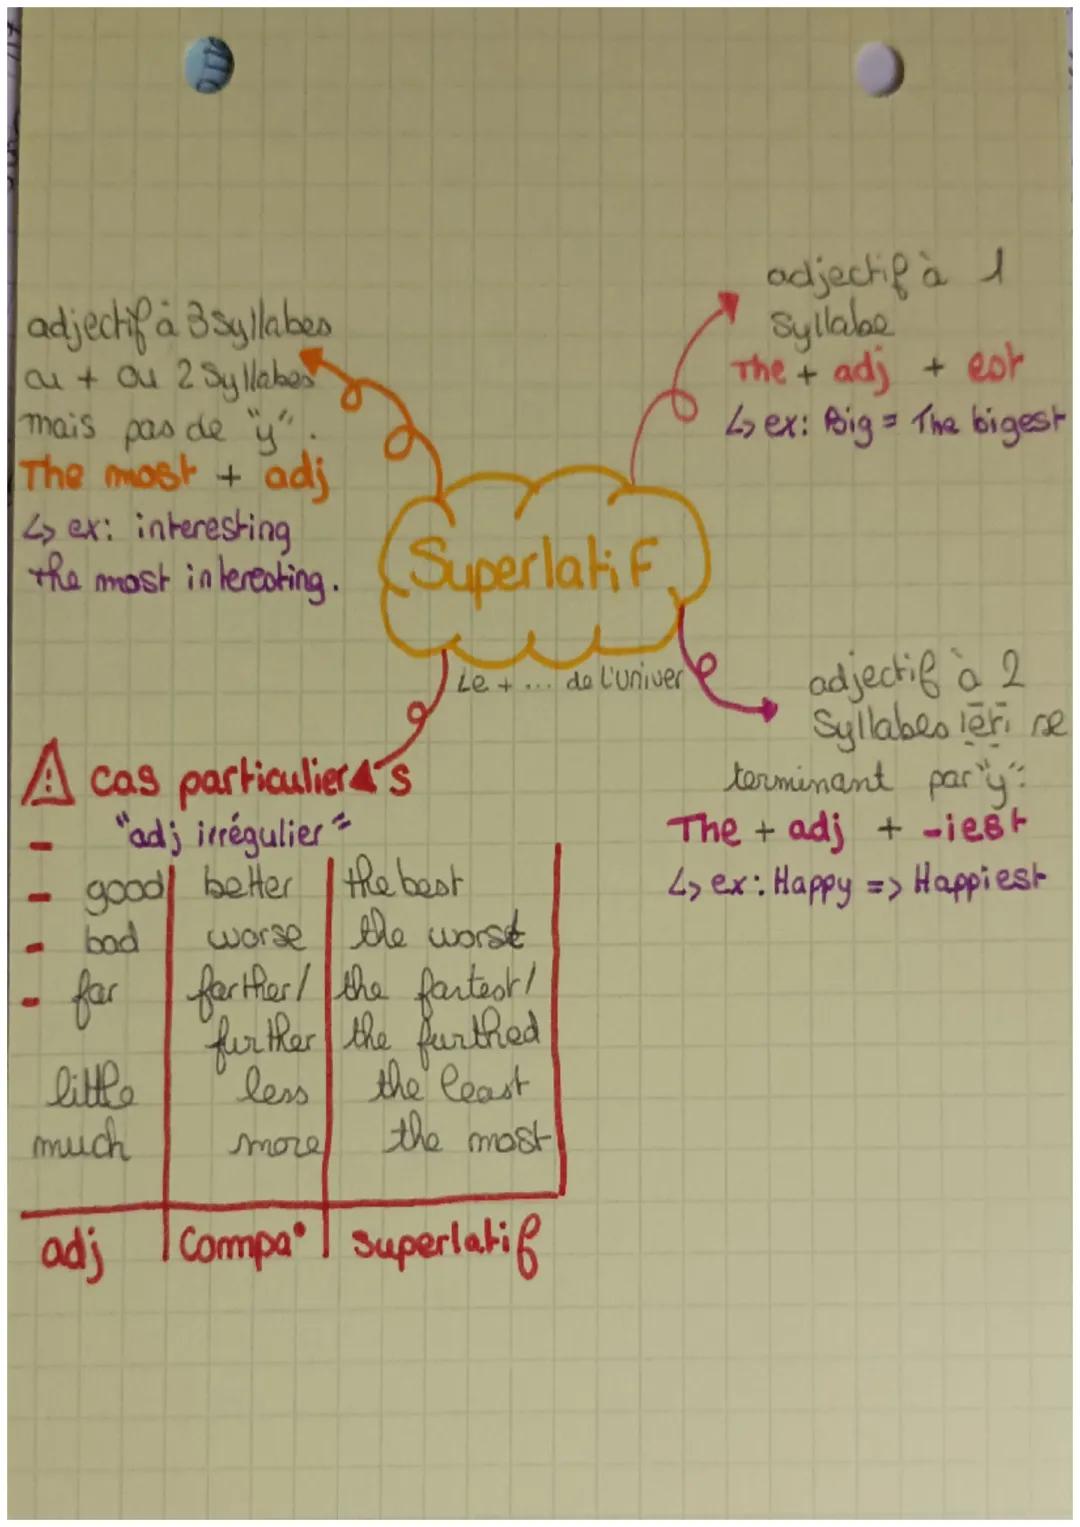 adjectif à 3 syllabes
ou + ou 2 Syllabes
mais pas de "y".
The most + adj
↳ ex: interesting
the most interesting.
adjectif à 1
syllabe
The + adj + est
↳ ex: Big = The bigest
Superlatif
Le + ... de l'univer
adjectif à 2
Syllabes se
terminant par "y":
The + adj + -iest
↳ ex: Happy => Happiest
⚠ cas particulier's
"adj irrégulier"
- good | better | the best
- bad | worse | the worst
- far | farther/ | the fartest/
further | the furthed
little | less | the least
much | more | the most
adj | Compa° | superlatif